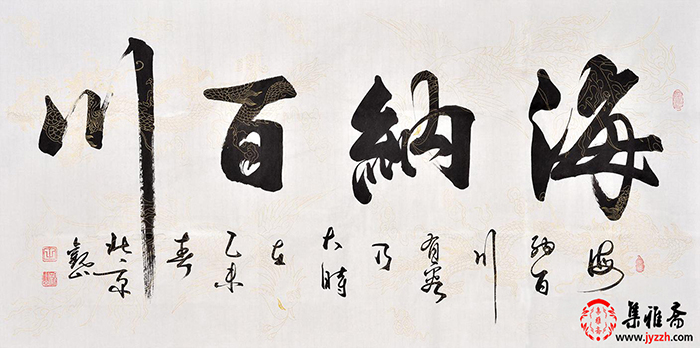 海納百川
海
納百
川
有容
乃
大時
在
乙未
春
北京
集雅斋
www.jyzzh.com